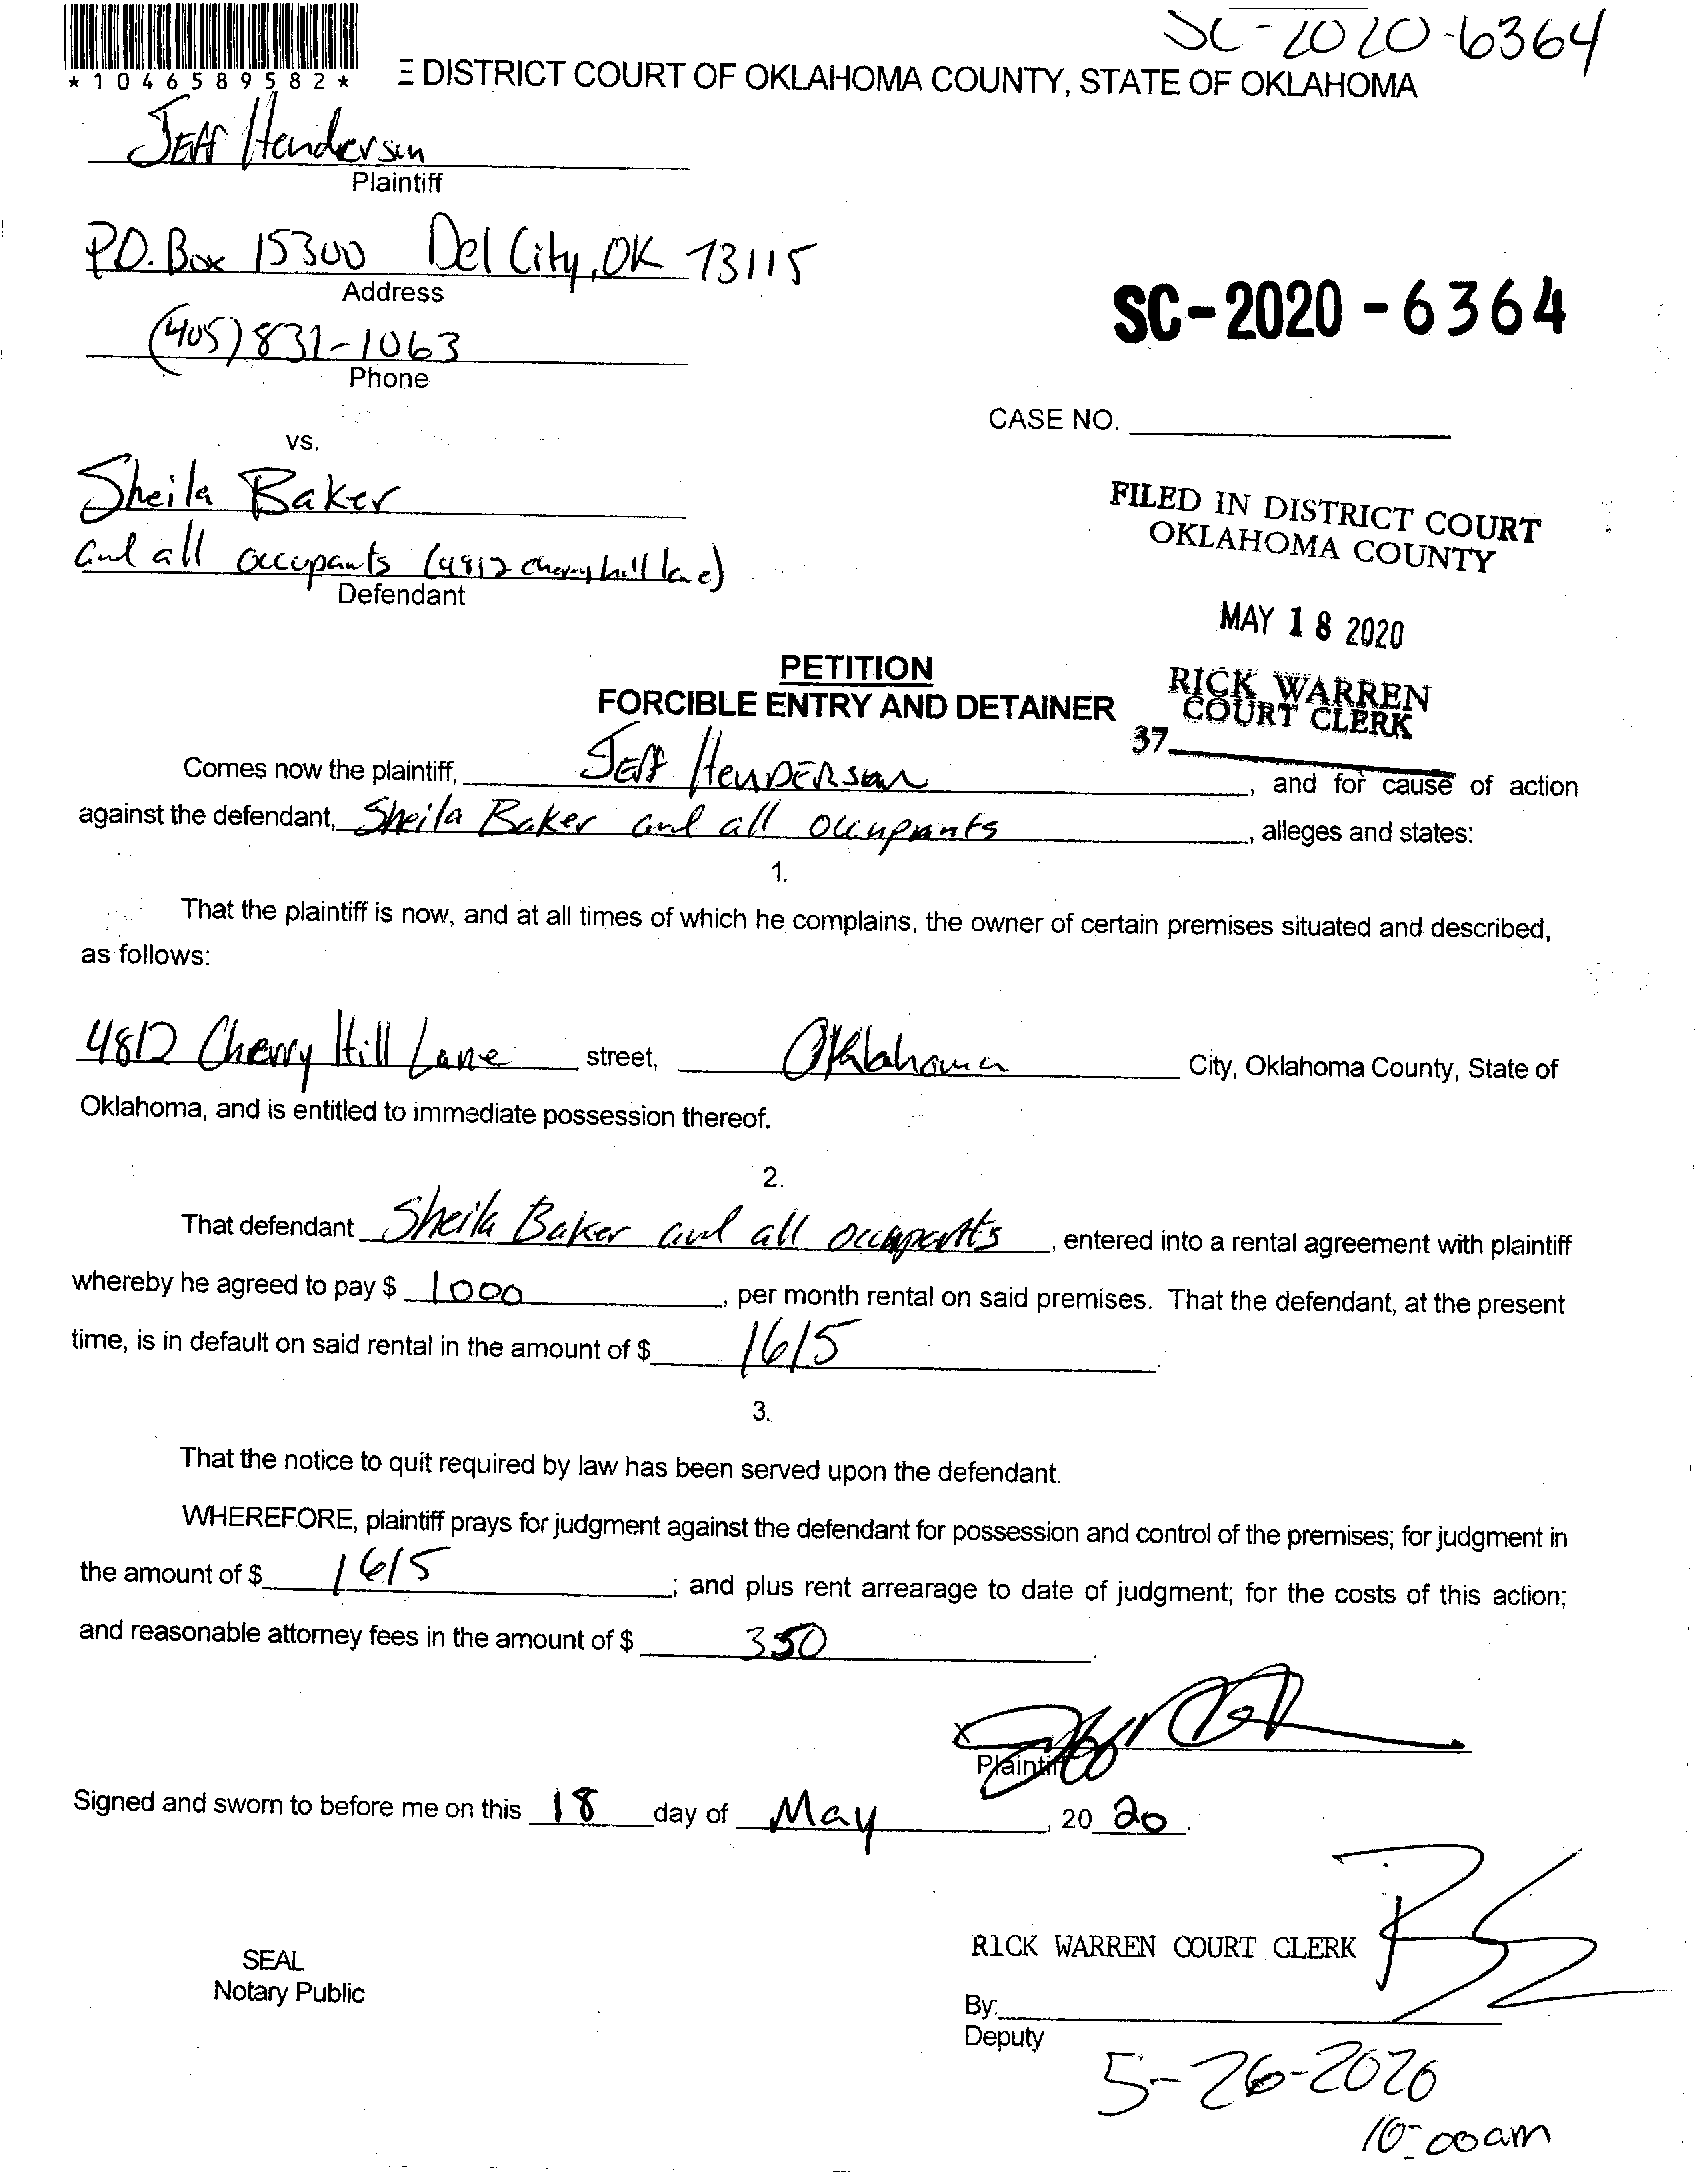 SC-2020-6364
*1046589582*
E DISTRICT COURT OF OKLAHOMA COUNTY, STATE OF OKLAHOMA
Jeff Henderson
Plaintiff
P.O. Box 15300 Del City, OK 73115
Address
(405) 831-1063
Phone
SC-2020-6364
CASE NO.
vs.
Sheila Baker
and all occupants (4812 cherry hill lane)
Defendant
FILED IN DISTRICT COURT
OKLAHOMA COUNTY
MAY 18 2020
RICK WARREN
COURT CLERK
37
PETITION
FORCIBLE ENTRY AND DETAINER
Comes now the plaintiff, Jeff Henderson, and for cause of action
against the defendant, Sheila Baker and all occupants, alleges and states:
1.
That the plaintiff is now, and at all times of which he complains, the owner of certain premises situated and described,
as follows:
4812 Cherry Hill Lane street, Oklahoma City, Oklahoma County, State of
Oklahoma, and is entitled to immediate possession thereof.
2.
That defendant Sheila Baker and all occupants, entered into a rental agreement with plaintiff
whereby he agreed to pay $ 1000, per month rental on said premises. That the defendant, at the present
time, is in default on said rental in the amount of $ 1615.
3.
That the notice to quit required by law has been served upon the defendant.
WHEREFORE, plaintiff prays for judgment against the defendant for possession and control of the premises; for judgment in
the amount of $ 1615; and plus rent arrearage to date of judgment; for the costs of this action;
and reasonable attorney fees in the amount of $ 350.
Plaintiff
Signed and sworn to before me on this 18 day of May, 2020.
RICK WARREN COURT CLERK
SEAL
Notary Public
By:
Deputy
5-26-2020
10:00am